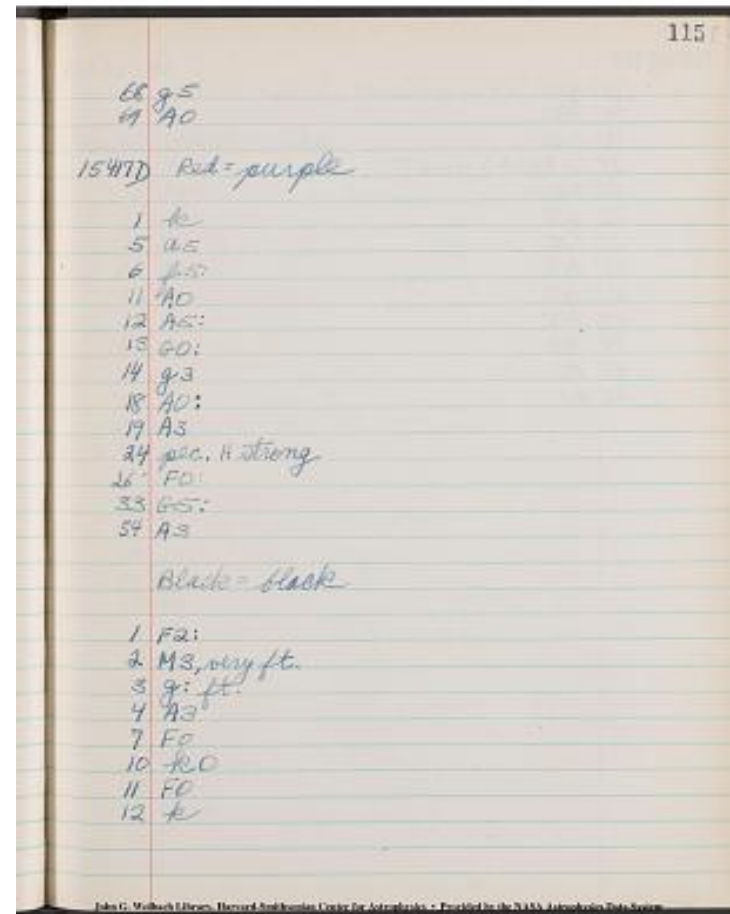 115
68 g5
69 A0
15417D Red = purple
1 k
5 a5
6 f5:
11 A0
12 A5:
13 G0:
14 g3
18 A0:
19 A3
24 pec. H strong
26 F0:
33 G5:
54 A3
Black = black
1 F2:
2 M3, very ft.
3 g: ft.
4 A3
7 F0
10 k0
11 F0
12 k
John G. Wolbach Library, Harvard-Smithsonian Center for Astrophysics • Provided by the NASA Astrophysics Data System